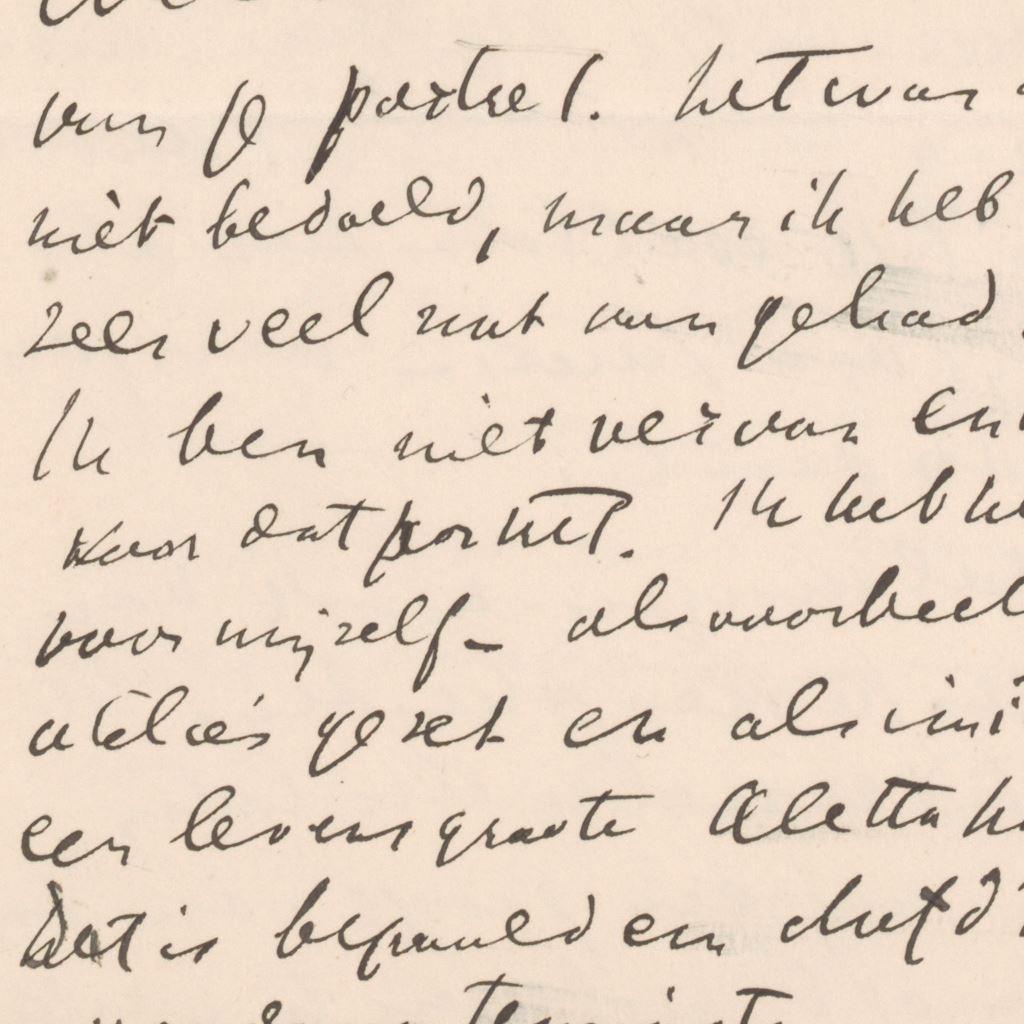 van je portret. het was
niet bedoeld, maar ik heb
zeer veel nut van gehad.
Ik ben niet vervan
voor dat portret. Ik heb
voor mijzelf - als voorbeel
atelier gezet en als
een levensgroote Aletta
Dat is bepaald een